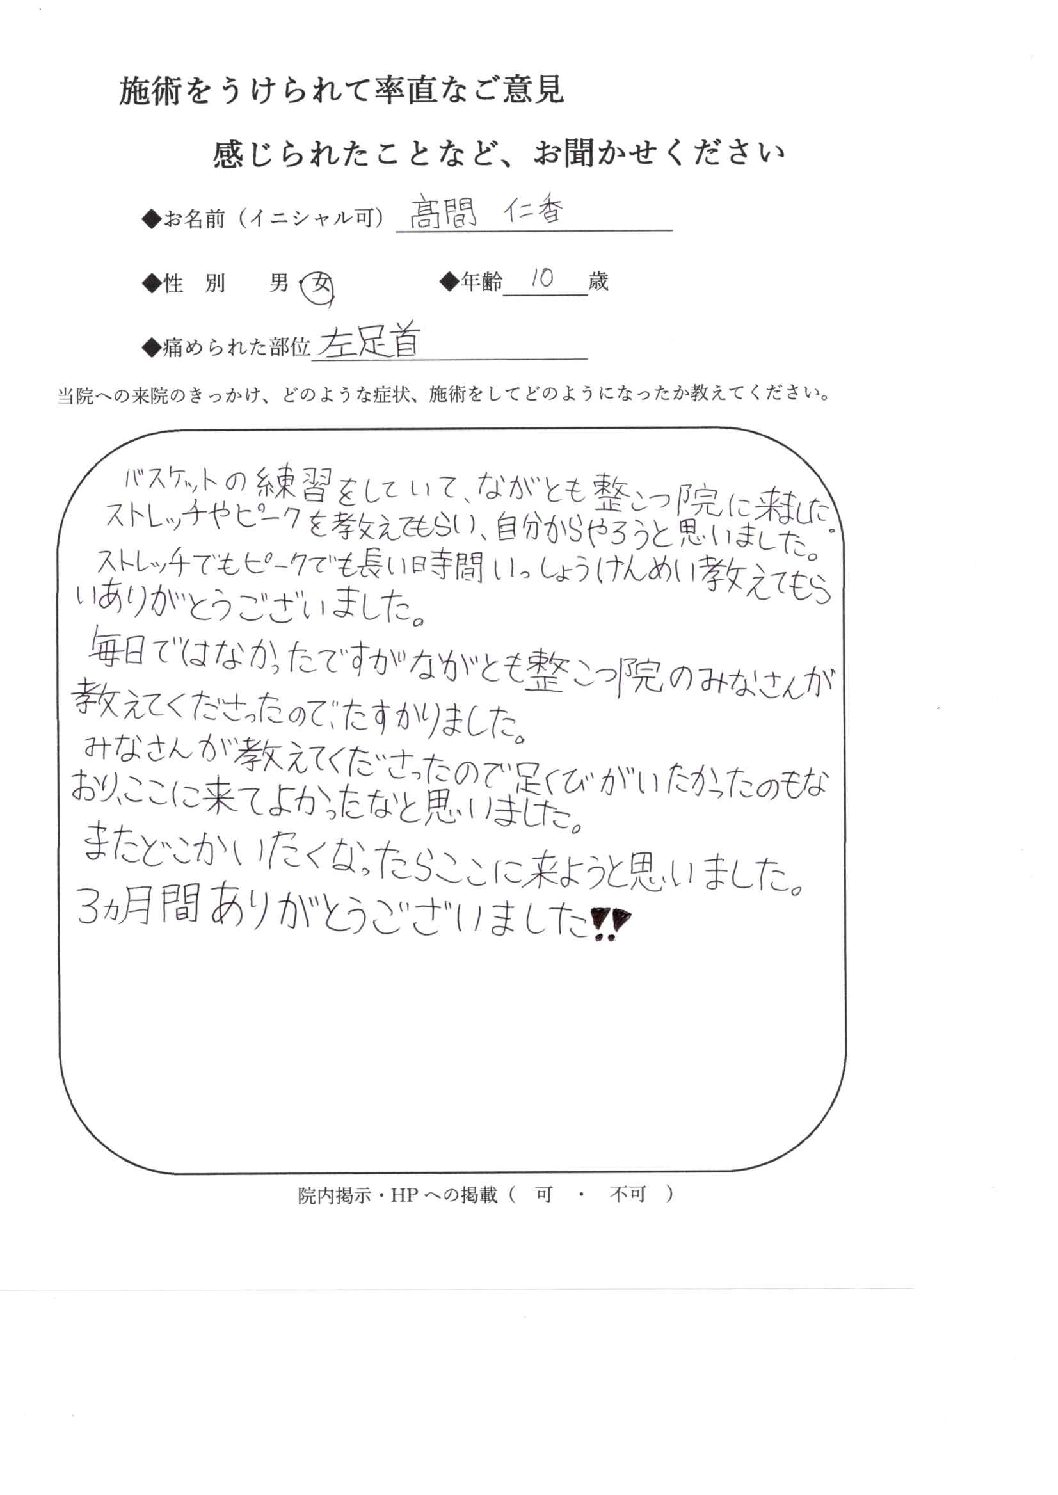 施術をうけられて率直なご意見
感じられたことなど、お聞かせください
◆お名前（イニシャル可） 髙間 仁香
◆性 別 男・女 ◆年齢 10 歳
◆痛められた部位 左足首
当院への来院のきっかけ、どのような症状、施術をしてどのようになったか教えてください。
バスケットの練習をしていて、ながとも整こつ院に来ました。
ストレッチやピークを教えてもらい、自分からやろうと思いました。
ストレッチでもピークでも長い時間いっしょうけんめい教えてもら
いありがとうございました。
毎日ではなかったですがながとも整こつ院のみなさんが
教えてくださったので、たすかりました。
みなさんが教えてくださったので足くびがいたかったのもな
おり、ここに来てよかったなと思いました。
またどこかいたくなったらここに来ようと思いました。
3ヵ月間ありがとうございました!!
院内掲示・HPへの掲載（ 可 ・ 不可 ）